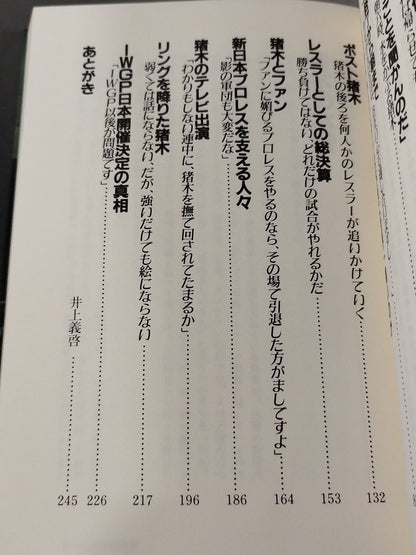 ことを聞かんのだ」
ポスト猪木
猪木の後ろを何人かのレスラーが追いかけていく……132
レスラーとしての総決算
勝ち負けではない、どれだけの試合がやれるかだ……153
猪木とファン
「ファンに媚びるプロレスをやるのなら、その場で引退した方がましてすよ」……164
新日本プロレスを支える人々
「影の軍団も大変だな」……186
猪木のテレビ出演
「わかりもしない連中に、猪木を撫で回されてたまるか」……196
リングを降りた猪木
弱くては話にならない、だが、強いだけでも絵にならない……217
IWGP日本開催決定の真相
「IWGP以後が問題です」……226
あとがき　井上義啓……245